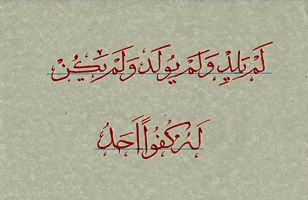 لَمْ يَلِدْ وَلَمْ يُولَدْ وَلَمْ يَكُنْ
لَهُ كُفُوًا أَحَدٌ